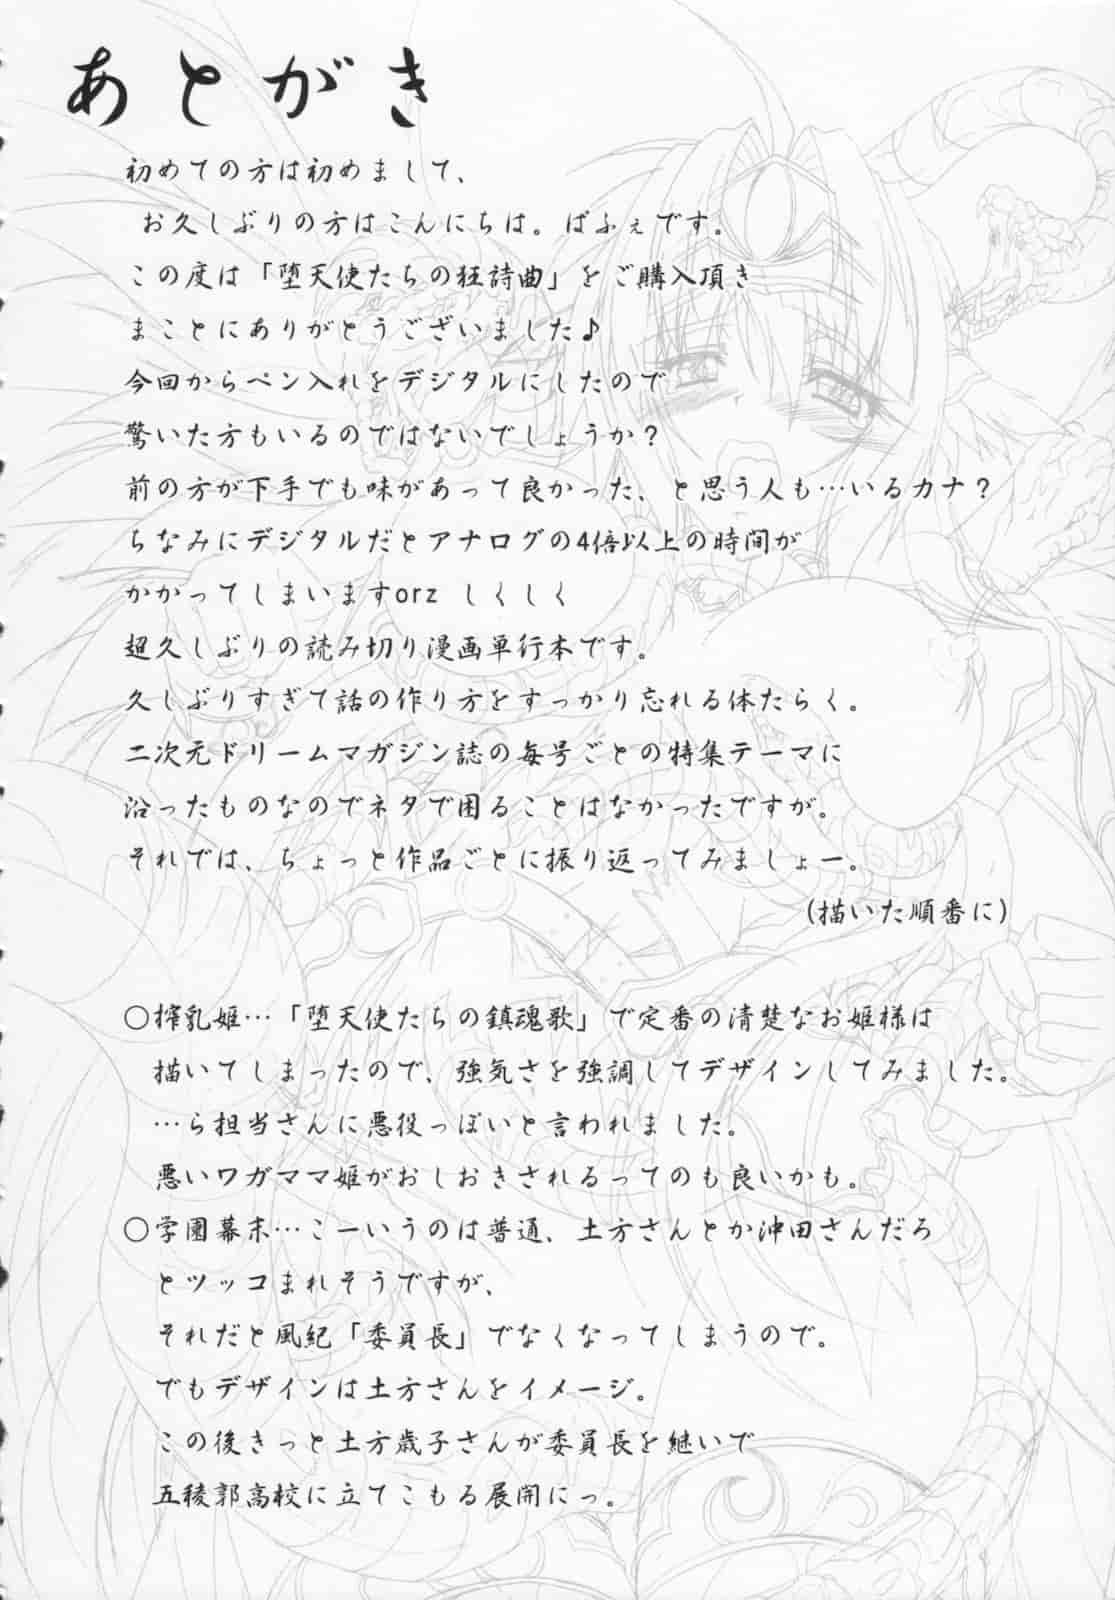 あとがき
初めての方は初めまして、
お久しぶりの方はこんにちは。ぱふぇです。
この度は「堕天使たちの狂詩曲」をご購入頂き
まことにありがとうございました♪
今回からペン入れをデジタルにしたので
驚いた方もいるのではないでしょうか？
前の方が下手でも味があって良かった、と思う人も…いるカナ？
ちなみにデジタルだとアナログの4倍以上の時間が
かかってしまいますorz しくしく
超久しぶりの読み切り漫画単行本です。
久しぶりすぎて話の作り方をすっかり忘れる体たらく。
二次元ドリームマガジン誌の毎号ごとの特集テーマに
沿ったものなのでネタで困ることはなかったですが。
それでは、ちょっと作品ごとに振り返ってみましょー。
(描いた順番に)
○搾乳姫…「堕天使たちの鎮魂歌」で定番の清楚なお姫様は
描いてしまったので、強気さを強調してデザインしてみました。
…ら担当さんに悪役っぽいと言われました。
悪いワガママ姫がおしおきされるってのも良いかも。
○学園幕末…こーいうのは普通、土方さんとか沖田さんだろ
とツッコまれそうですが、
それだと風紀「委員長」でなくなってしまうので。
でもデザインは土方さんをイメージ。
この後きっと土方歳子さんが委員長を継いで
五稜郭高校に立てこもる展開にっ。